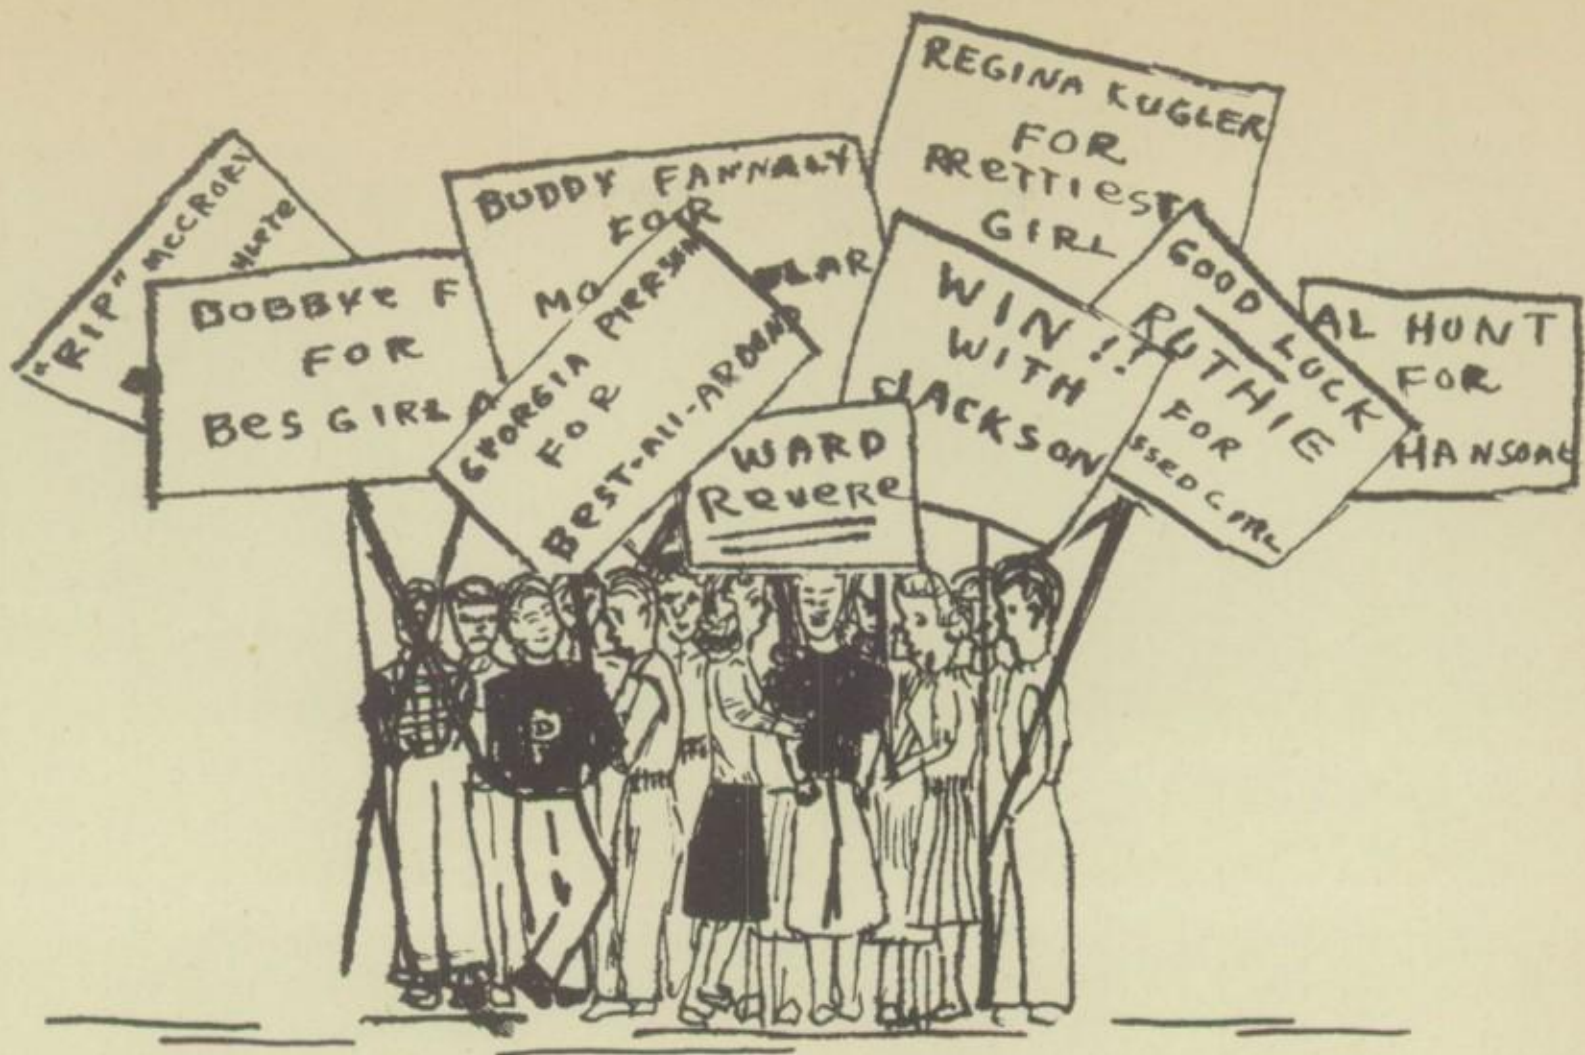 "RIP" MCCRORY
BOBBYE F
FOR
BES GIRL A
BUDDY FANNALY
FOR
MO
LAR
GEORGIA PIERSON
FOR
BEST-ALL-AROUND
WARD
REVERE
REGINA KUGLER
FOR
PRETTIEST
GIRL
WIN!!
WITH
JACKSON
GOOD LUCK
RUTHIE
FOR
SSED GIRL
AL HUNT
FOR
HANSOME
D